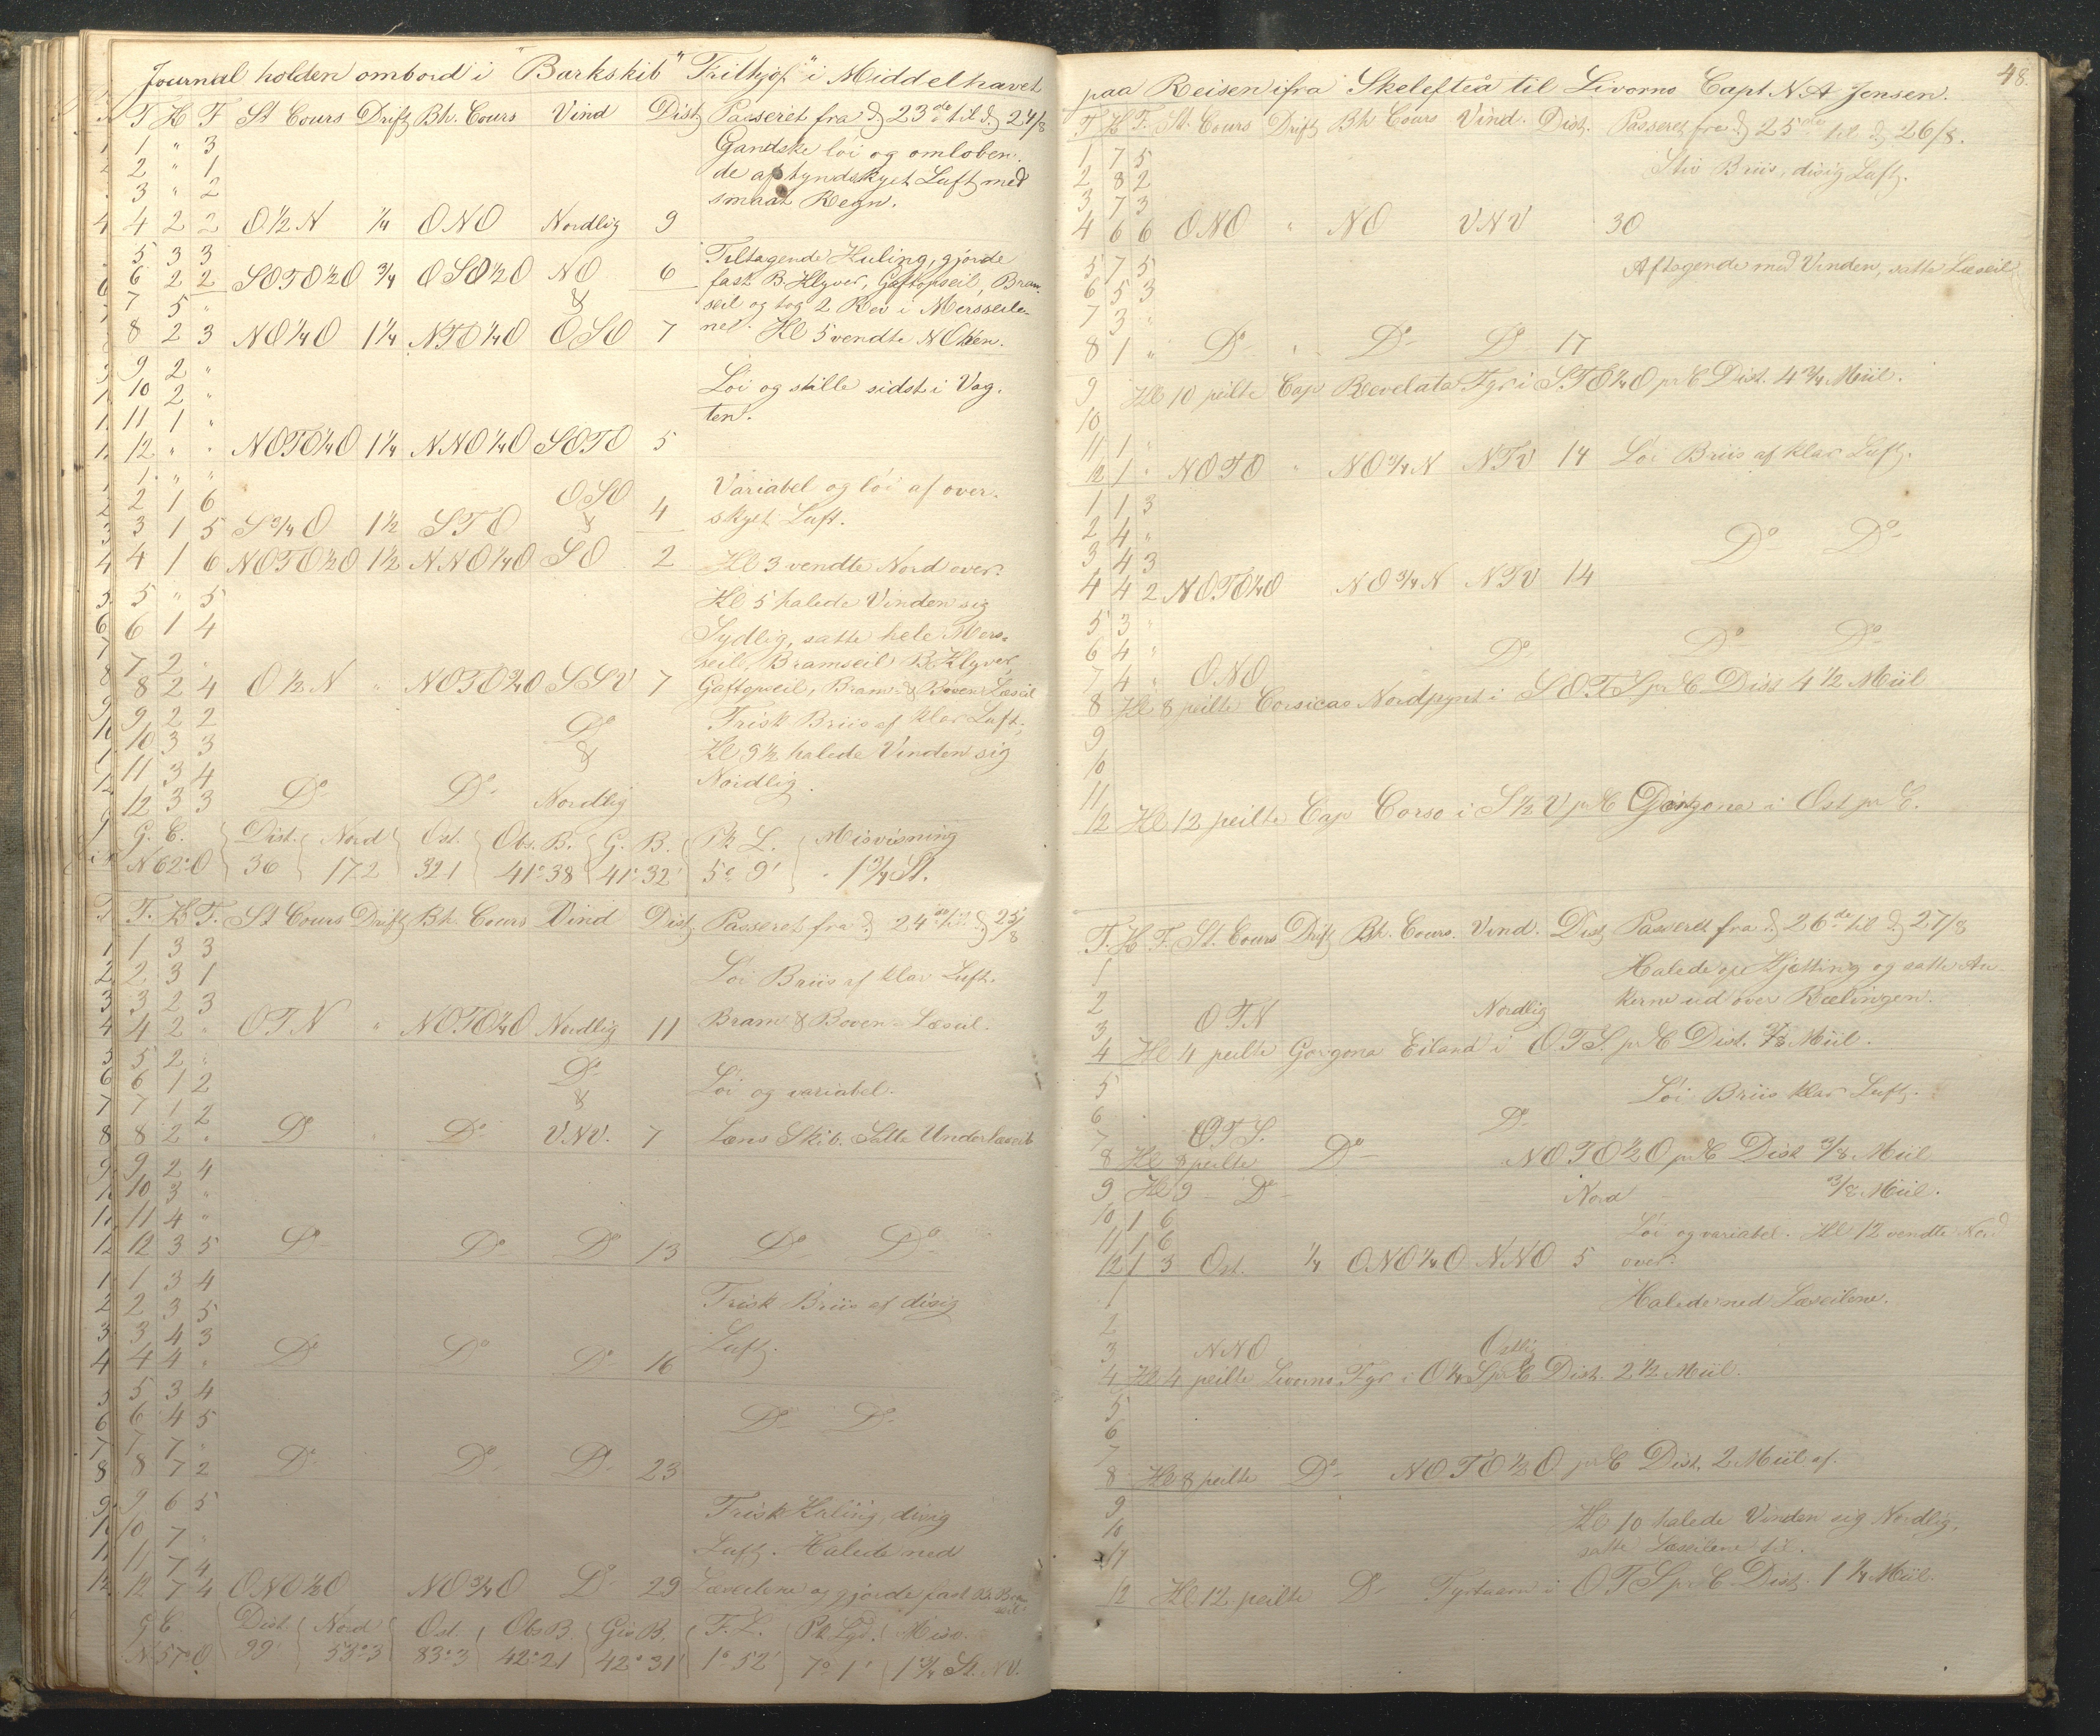 Journal holden ombord i "Barkskib" "Frithjof" i Middelhavet
T K F St Cours Drift Bh. Cours Vind Dist Passeret fra d 23de til d 24/8
1 " 3 Gandske löi og omlöben-
2 " 1 de af tyndskyet Luft med
3 " 2 smaat Regn.
4 2 2 O½N ¼ ONO Nordlig 9
5 3 3 Tiltagende Kuling, gjorde
6 2 2 SOTO½O ¾ OSO½O NO 6 fast B. Klyver, Gaftopseil, Bram-
7 5 " & seil og tog 2 Rev i Mersseile-
8 2 3 NO¼O 1¼ NTO¼O OSO 7 ne. Kl 5 vendte NOhen.
9 2 "
10 2 " Löi og stille sidst i Vag-
11 1 " ten.
12 " " NOTO¼O 1¼ NNO¼O SOTO 5
1 " "
2 1 6 OSO Variabel og löi af over-
3 1 5 S¾O 1½ STO & 4 skyet Luft.
4 1 6 NOTO½O 1½ NNO¼O SO 2 Kl 3 vendte Nord over.
5 " 5 Kl 5 halede Vinden sig
6 1 4 Sydlig, satte hele Mers-
7 2 " seil, Bramseil B. Klyver,
8 2 4 O½N " NOTO¾O SSV 7 Gaftopseil, Bram- & Boven-Læseil
9 2 2 Frisk Briis af klar Luft,
10 3 3 Do & Kl 9½ halede Vinden sig
11 3 4 Nordlig.
12 3 3 Do Do Nordlig
G. C. Dist. Nord Ost. Obs. B. G. B. Pk L. Misvisning
N62°O 36 172 321 41°38 41°32' 5° 9' 1¾ St.
T. K F. St Cours Drift Bh. Cours Vind Dist. Passeret fra d 24de til d 25/8
1 3 3
2 3 1 Löi Briis af klar Luft.
3 2 3
4 2 " OTN " NOTO¼O Nordlig 11 Bram & Boven-Læseil.
5 2 "
6 1 2 Do Löi og variabel.
7 1 2 &
8 2 " Do " Do VNV. 7 Læns Skib. Satte Underlæseil
9 2 4
10 3 "
11 4 "
12 3 5 Do Do Do 13 Do Do
1 3 4
2 3 5 Frisk Briis af disig
3 4 3 Luft.
4 4 " Do Do Do 16
5 3 4
6 4 5 Do Do
7 7 "
8 7 2 Do Do Do 23
9 6 5 Frisk Kuling, disig
10 7 " Luft. Halede ned
11 7 4
12 7 4 ONO½O NO¾O Do 29 Læseilene og gjorde fast B. Bramseil
G C Dist. Nord Ost. Obs B. Gis B. F. L. Pk Lgd. Misv.
N57°O 99' 53°3 83°3 42°21 42°31' 1°52' 7°1' 1¾ St. NV.
48.
paa Reisen ifra Skelefteå til Livorno Capt N. A Jensen.
T K F. St. Cours Drift Bh Cours Vind. Dist. Passeret fra d 25de til d 26/8.
1 7 5 Stiv Briis, disig Luft.
2 8 2
3 7 3
4 6 6 ONO " NO VNV 30
5 7 5 Aftagende med Vinden, satte Læseil
6 5 3
7 3 "
8 1 " Do " Do Do 17
9 Kl 10 peilte Cap Revelata Fyr i STO¼O pr C Dist. 4¾ Miil.
10
11 1 "
12 1 " NOTO " NO¾N NTV 14 Löi Briis af klar Luft.
1 1 3
2 4 " Do Do
3 4 3
4 4 2 NOTO¼O NO¾N NTV 14
5 3 "
6 4 " Do Do Do
7 4 " ONO
8 Kl 8 peilte Corsicas Nordpynt i SOTS pr C Dist 4½ Miil
9
10
11
12 Kl 12 peilte Cap Corso i S½V pr C Gorgone i Ost pr C.
T. K F. St. Cours Drift Bh. Cours. Vind. Dist Passeret fra d 26de til d 27/8
1 Halede op Kjetting og satte An-
2 Nordlig kerne ud over Rælingen.
3 OTN
4 Kl 4 peilte Gorgona Eiland i OTS. pr C Dist. ⅞ Miil.
5 Löi Briis klar Luft.
6 Do
7 OTS.
8 Kl 8 peilte Do NOTO½O pr C Dist ⅜ Miil
9 Kl 9 Do Nord ⅜ Miil.
10 1 6
11 1 6 Löi og variabel. Kl 12 vendte Nord
12 1 3 Ost. ¼ ONO¼O NNO 5 over.
1 Halede ned Læseilene.
2
3 NNO Ostlig
4 Kl 4 peilte Livorno Fyr i O¼S pr C Dist. 2½ Miil.
5
6
7
8 Kl 8 peilte Do NOTO½O pr C Dist. 2 Miil af.
9
10 Kl 10 halede Vinden sig Nordlig,
11 satte Læseilene til.
12 Kl 12 peilte Do Fyrtaarn i OTS pr C Dist. 1¼ Miil.